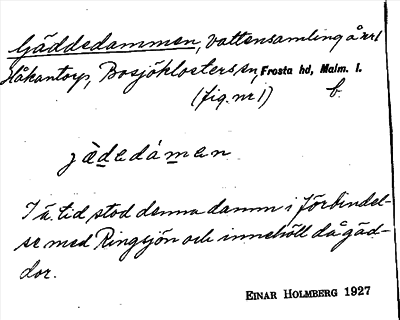 Gäddedammen, vattensamling å nr 1
Håkantorp, Bosjöklosters sn, Frosta hd, Malm. l.
(fig. nr 1) b.
jädedámen
I ä. tid stod denna damm i förbindel-
se med Ringsjön och innehöll då gäd-
dor.
EINAR HOLMBERG 1927